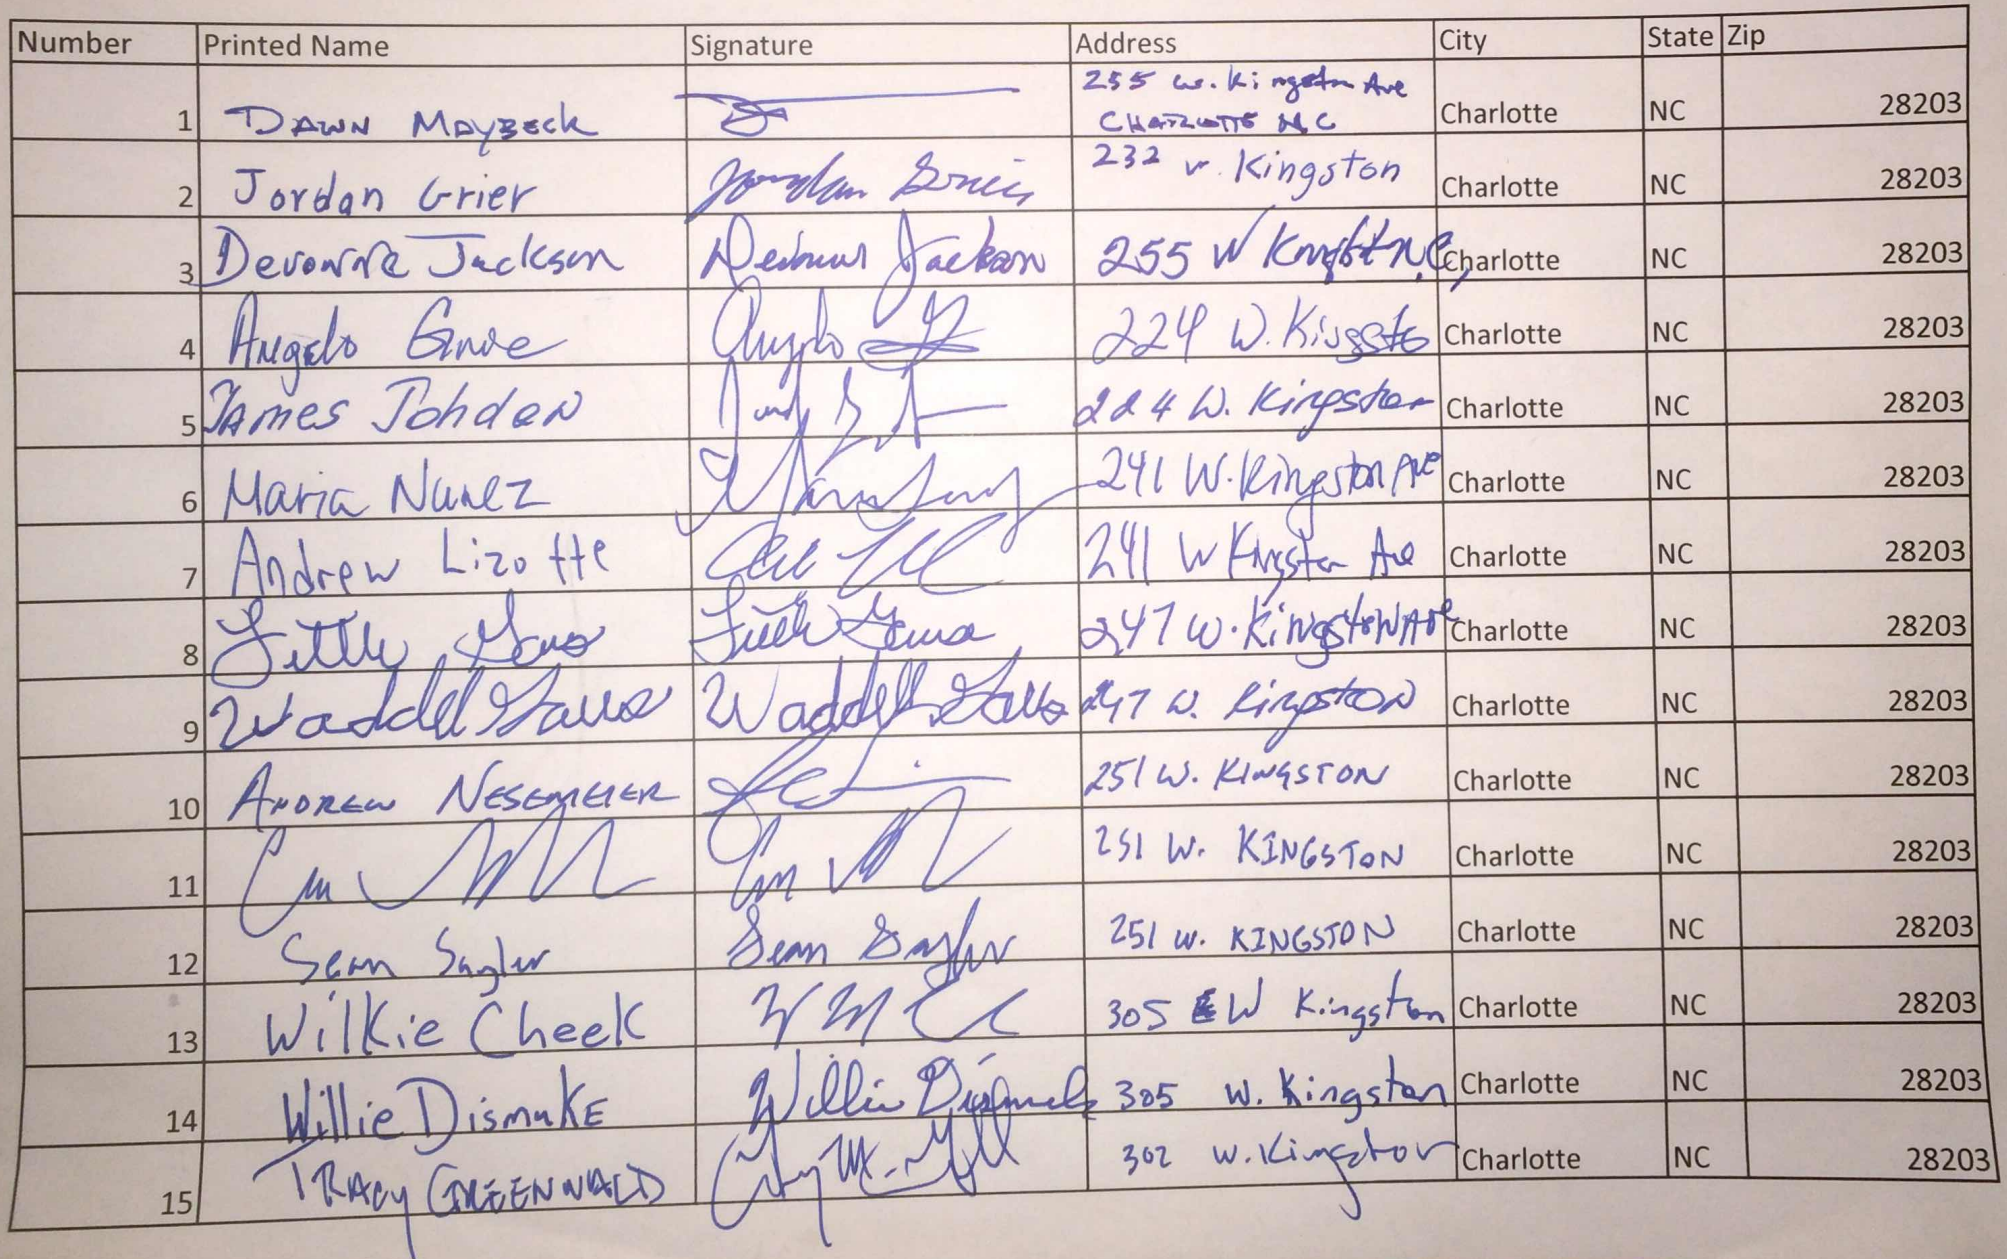 Number Printed Name Signature Address City State Zip
255 W. Kingston Ave
1 DAWN MAYBECK CHARLOTTE NC Charlotte NC 28203
2 Jordan Grier Jordan Grier 232 W. Kingston Charlotte NC 28203
3 Devonne Jackson Jackson 255 W Charlotte NC 28203
4 Angelo Angelo 224 W. Charlotte NC 28203
5 JAMES 224 W. Kingston Charlotte NC 28203
6 Maria Nunez 241 W. Kingston Ave Charlotte NC 28203
7 Andrew Lizotte 241 W Kingston Ave Charlotte NC 28203
8 247 W. Kingston Ave Charlotte NC 28203
9 Waddell Waddell 247 W. Kingston Charlotte NC 28203
10 ANDREW NESEMEIER 251 W. KINGSTON Charlotte NC 28203
11 251 W. KINGSTON Charlotte NC 28203
12 Sean Saylor Sean Saylor 251 W. KINGSTON Charlotte NC 28203
13 Wilkie Cheek 305 W Kingston Charlotte NC 28203
14 Willie DismukE Willie 305 W. Kingston Charlotte NC 28203
15 TRACY GREENWALD 302 W. Kingston Charlotte NC 28203